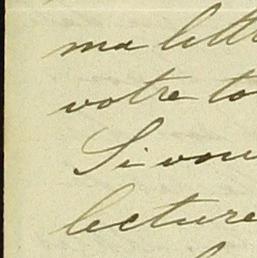 ma lett
votre to
Si vou
lecture